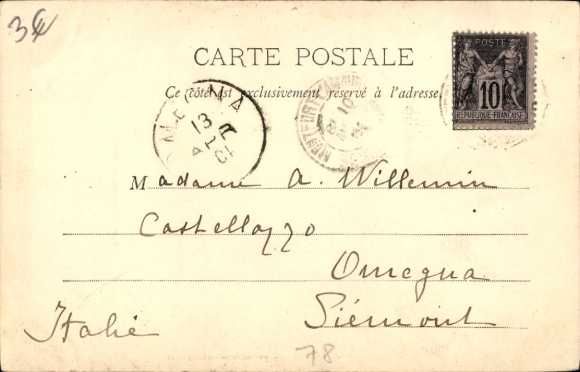 3€
CARTE POSTALE
Ce côté est exclusivement réservé à l'adresse
POSTE
10
REPUBLIQUE FRANÇAISE
OMEGNA
13
MONTFORT-L'AMAURY
10
Madame A. Willemin
Castellazzo
Omegna
Piémont
Italie
78